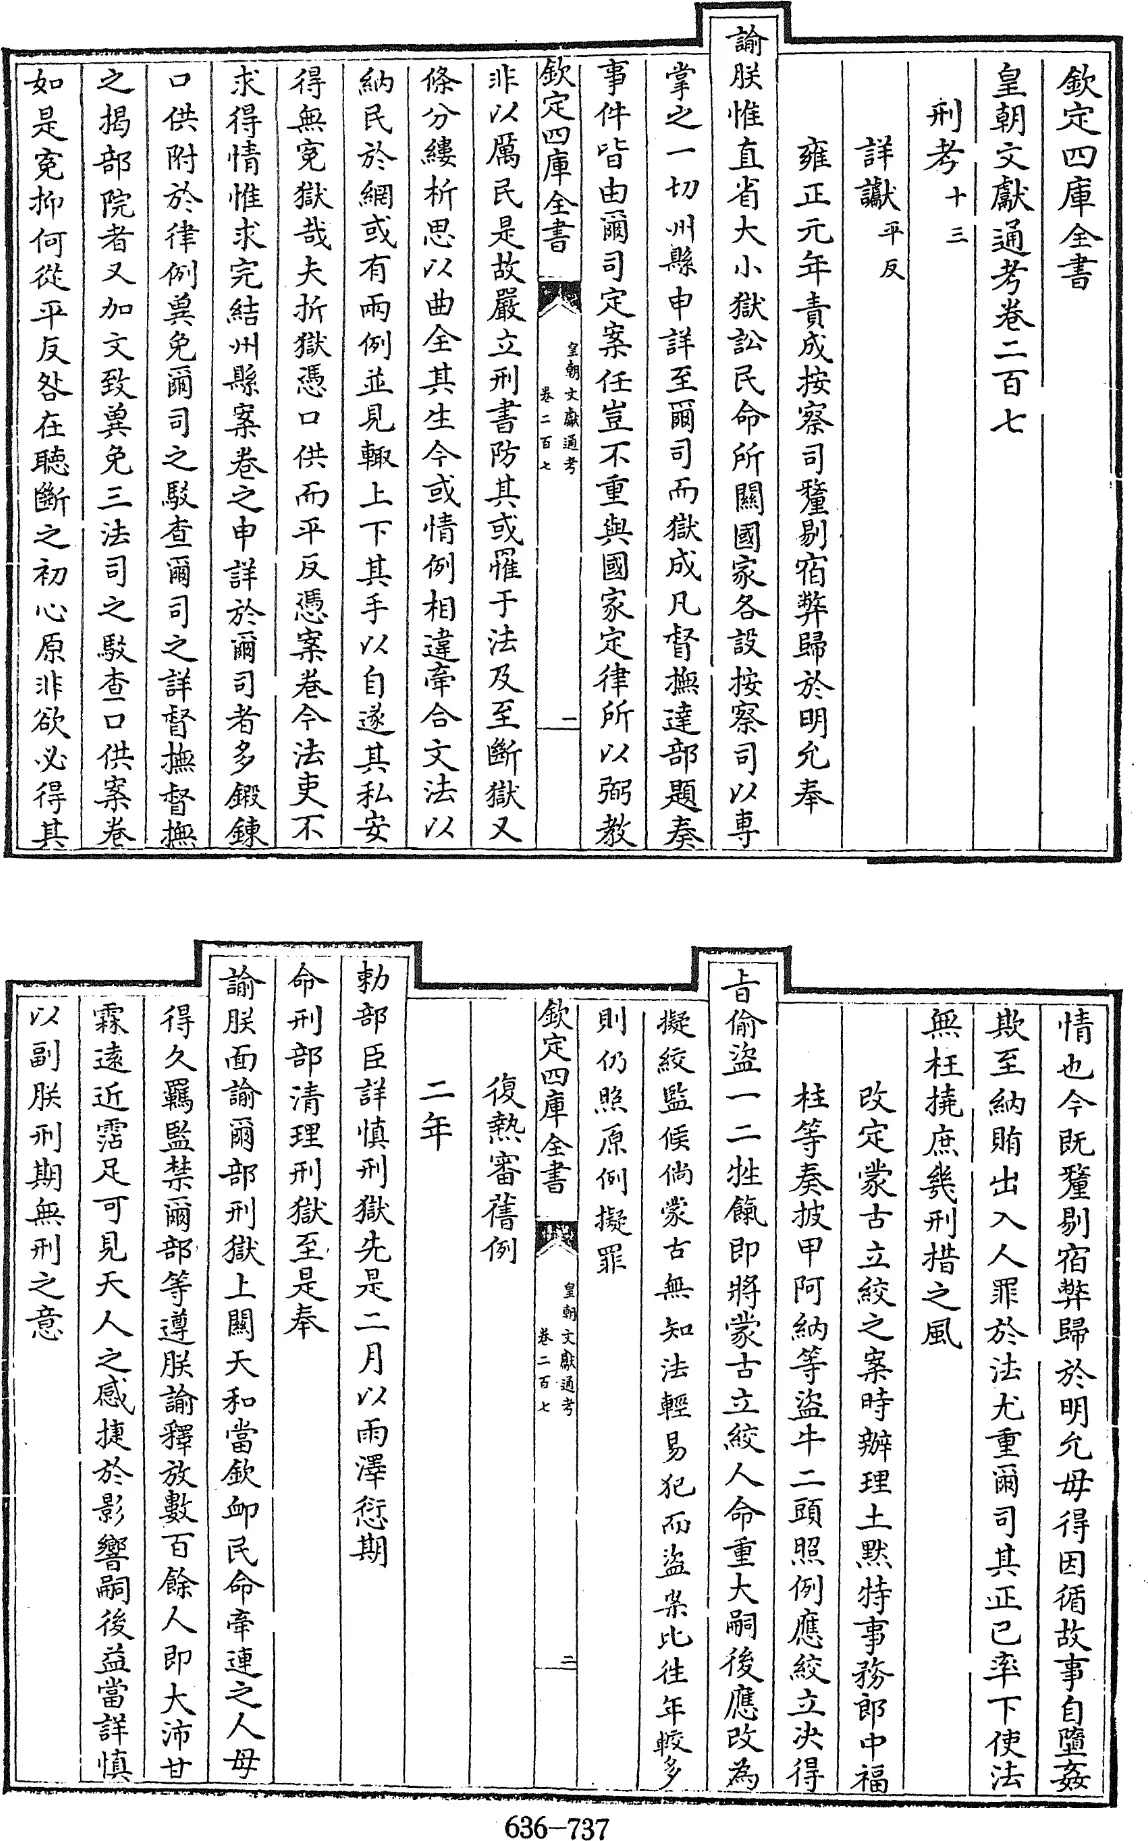 欽定四庫全書
皇朝文獻通考卷二百七
刑考十三
詳讞平反
雍正元年責成按察司釐剔宿弊歸於明允奉
諭朕惟直省大小獄訟民命所關國家各設按察司以專
掌之一切州縣申詳至爾司而獄成凡督撫達部題奏
事件皆由爾司定案任豈不重與國家定律所以弼教
欽定四庫全書
皇朝文獻通考
卷二百七
一
非以厲民是故嚴立刑書防其或罹于法及至斷獄又
條分縷析思以曲全其生今或情例相違牽合文法以
納民於網或有兩例並見輒上下其手以自遂其私安
得無寃獄哉夫折獄憑口供而平反憑案卷今法吏不
求得情惟求完結州縣案卷之申詳於爾司者多鍛鍊
口供附於律例兾免爾司之駁查爾司之詳督撫督撫
之揭部院者又加文致兾免三法司之駁查口供案卷
如是寃抑何從平反咎在聽斷之初心原非欲必得其
情也今既釐剔宿弊歸於明允毋得因循故事自墮姦
欺至納賄出入人罪於法尤重爾司其正已率下使法
無枉撓庶㡬刑措之風
改定蒙古立絞之案時辦理土黙特事務郎中福
柱等奏披甲阿納等盜牛二頭照例應絞立决得
旨偷盜一二牲餼即將蒙古立絞人命重大嗣後應改為
擬絞監候倘蒙古無知法輕易犯而盜案比往年較多
則仍照原例擬罪
欽定四庫全書
皇朝文獻通考
卷二百七
二
復熱審舊例
二年
勅部臣詳慎刑獄先是二月以雨澤愆期
命刑部清理刑獄至是奉
諭朕面諭爾部刑獄上關天和當欽卹民命牽連之人毋
得久羈監禁爾部等遵朕諭釋放數百餘人即大沛甘
霖遠近霑足可見天人之感捷於影響嗣後益當詳慎
以副朕刑期無刑之意
636-737